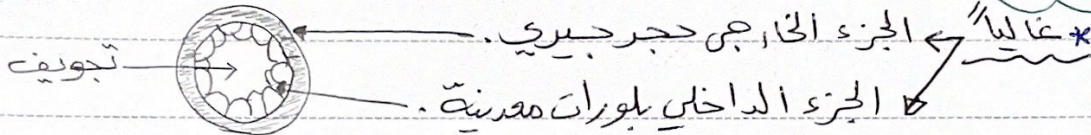 * غالباً الجزء الخارجي حجر جيري.
تجويف
الجزء الداخلي بلورات معدنية.